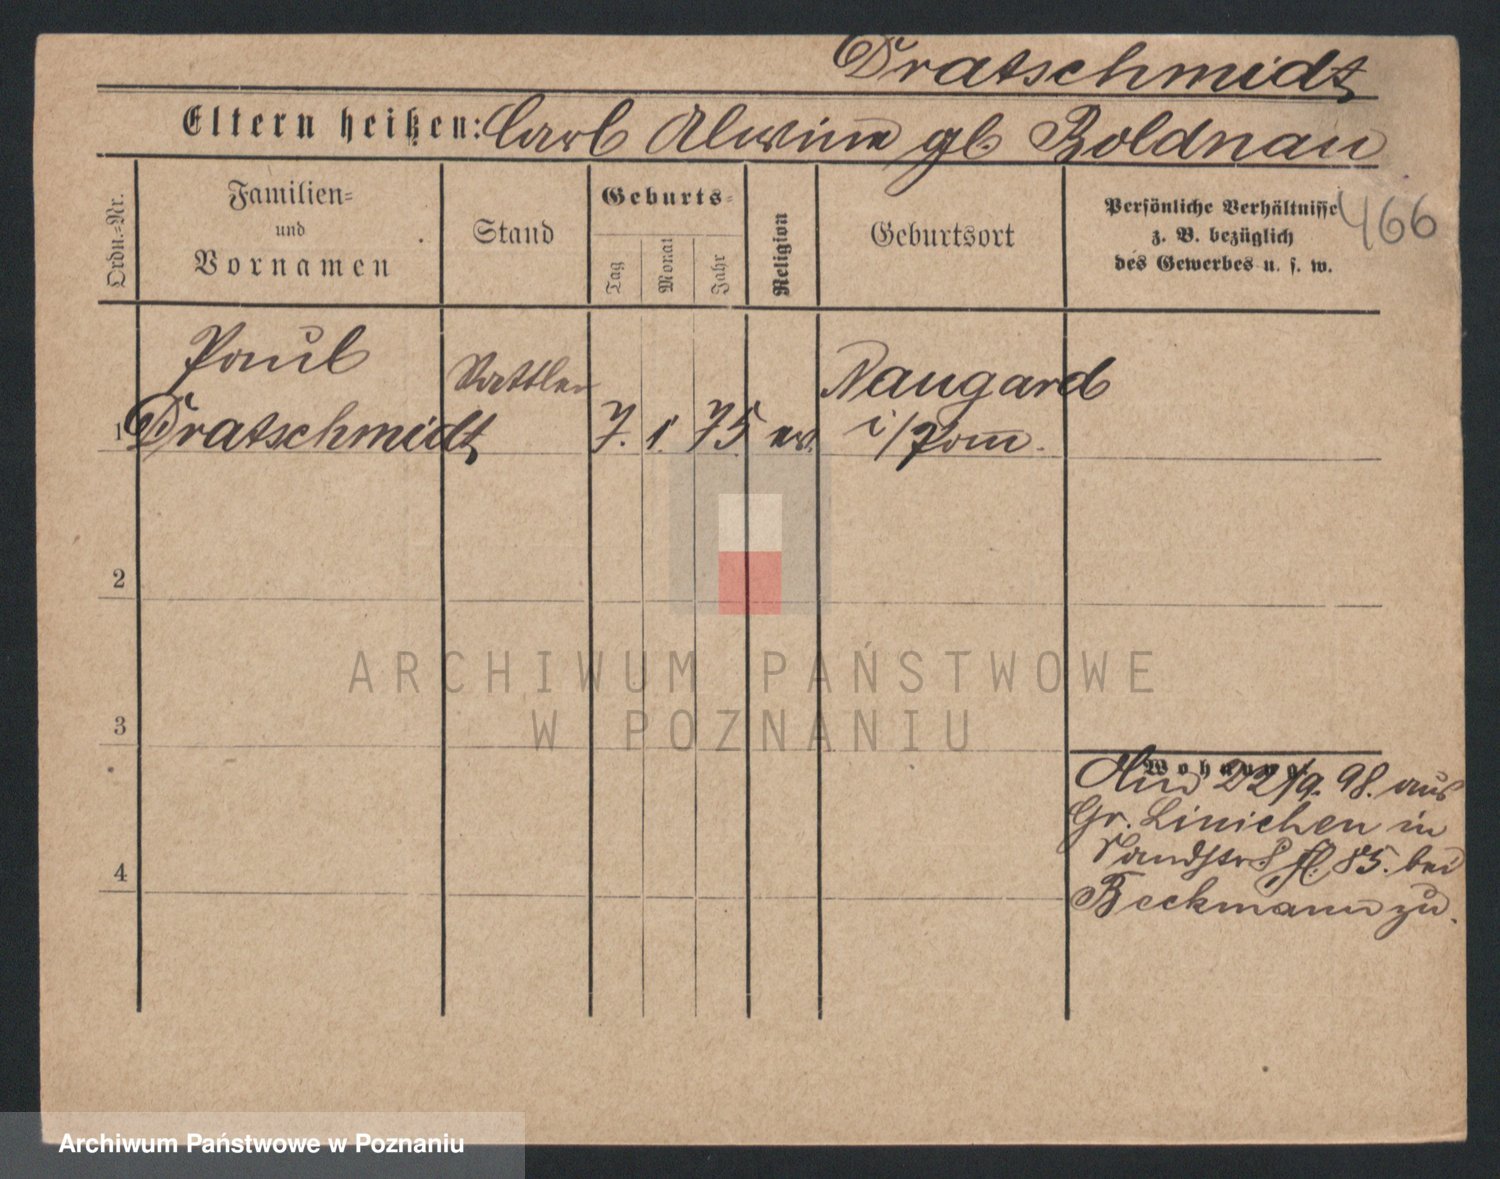 Dratschmidt
Eltern heißen: Carl Alwine gb Boldnau
Ordn.-Nr.
Familien-
und
Vornamen
Stand
Geburts-
Tag
Monat
Jahr
Religion
Geburtsort
Persönliche Verhältnisse
z. B. bezüglich
des Gewerbes u. s. w.
466
1
Paul
Dratschmidt
Sattler
7. 1. 75 ev.
Naugard
i/Pom.
2
3
4
Wohnung
22/9. 98. aus
Gr. Linichen in
85. bei
Beckmann zu.
ARCHIWUM PAŃSTWOWE
W POZNANIU
Archiwum Państwowe w Poznaniu